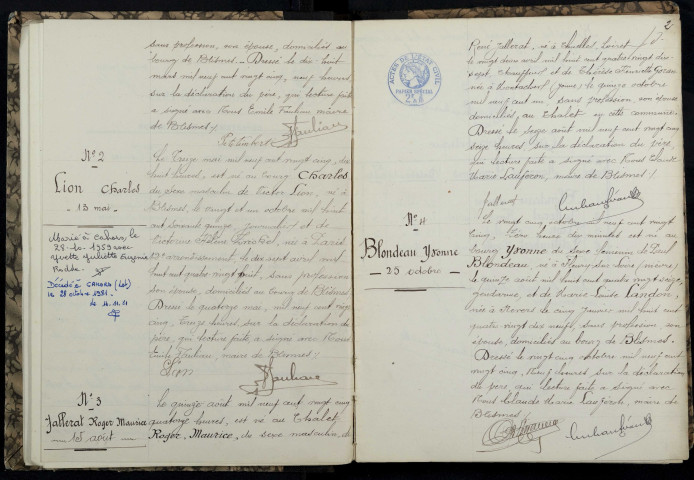 sans profession, son épouse, domiciliés au
bourg de Blismes. Dressé le dix huit
mars mil neuf cent vingt cinq, neuf heures
sur la déclaration du père, qui lecture faite
a signé avec Nous Emile Fauliau maire
de Blismes
N° 2
Lion Charles
13 mai
Marié à Cahors, le
28-10-1959 avec
Yvette Juliette Eugénie
Décédé à CAHORS (Lot)
le 28 octobre 1981
Le treize mai mil neuf cent vingt cinq,
est né au bourg Charles
du sexe masculin de Victor Lion, né à
Blismes, le vingt et un octobre mil huit
cent
Victorine né à Paris
arrondissement, le dix sept avril mil
huit cent quatre vingt huit, sans profession
son épouse, domiciliés au bourg de Blismes
Dressé le quatorze mai, mil neuf cent vingt
cinq, treize heures, sur la déclaration du
père, qui, lecture faite, a signé avec Nous
Emile Fauliau, maire de Blismes
Lion
N° 3
Jallerat Roger Maurice
15 août
Le quinze août mil neuf cent vingt cinq
quatorze heures, est né au Chalet,
Roger, Maurice, du sexe masculin, de
2
ACTES DE L'ETAT CIVIL
PAPIER SPECIAL
René Jallerat, né à Loiret
le vingt deux avril mil huit cent quatre vingt dix
sept, chauffeur et de Thérèse Henriette
née à (Yonne) le quinze octobre
mil neuf cent un, sans profession, son épouse
domiciliés au Chalet en cette commune.
Dressé le seize août mil neuf cent vingt cinq
seize heures, sur la déclaration du père,
qui lecture faite a signé avec Nous Claude
Marie maire de Blismes
N° 4
Blondeau Yvonne
25 octobre
Le vingt cinq octobre mil neuf cent vingt
cinq, heures dix minutes est née au
bourg Yvonne du sexe féminin de Paul
Blondeau né à Fleury sur Loire (Nièvre)
le quinze août mil huit cent quatre vingt seize,
gendarme, et de Marie Louise Landon,
née à Nevers le cinq janvier mil huit cent
quatre vingt dix neuf, sans profession, son
épouse, domiciliés au bourg de Blismes.
Dressé le vingt cinq octobre mil neuf cent
vingt cinq, neuf heures sur la déclaration
du père, qui lecture faite a signé avec
Nous Claude Marie maire de
Blismes